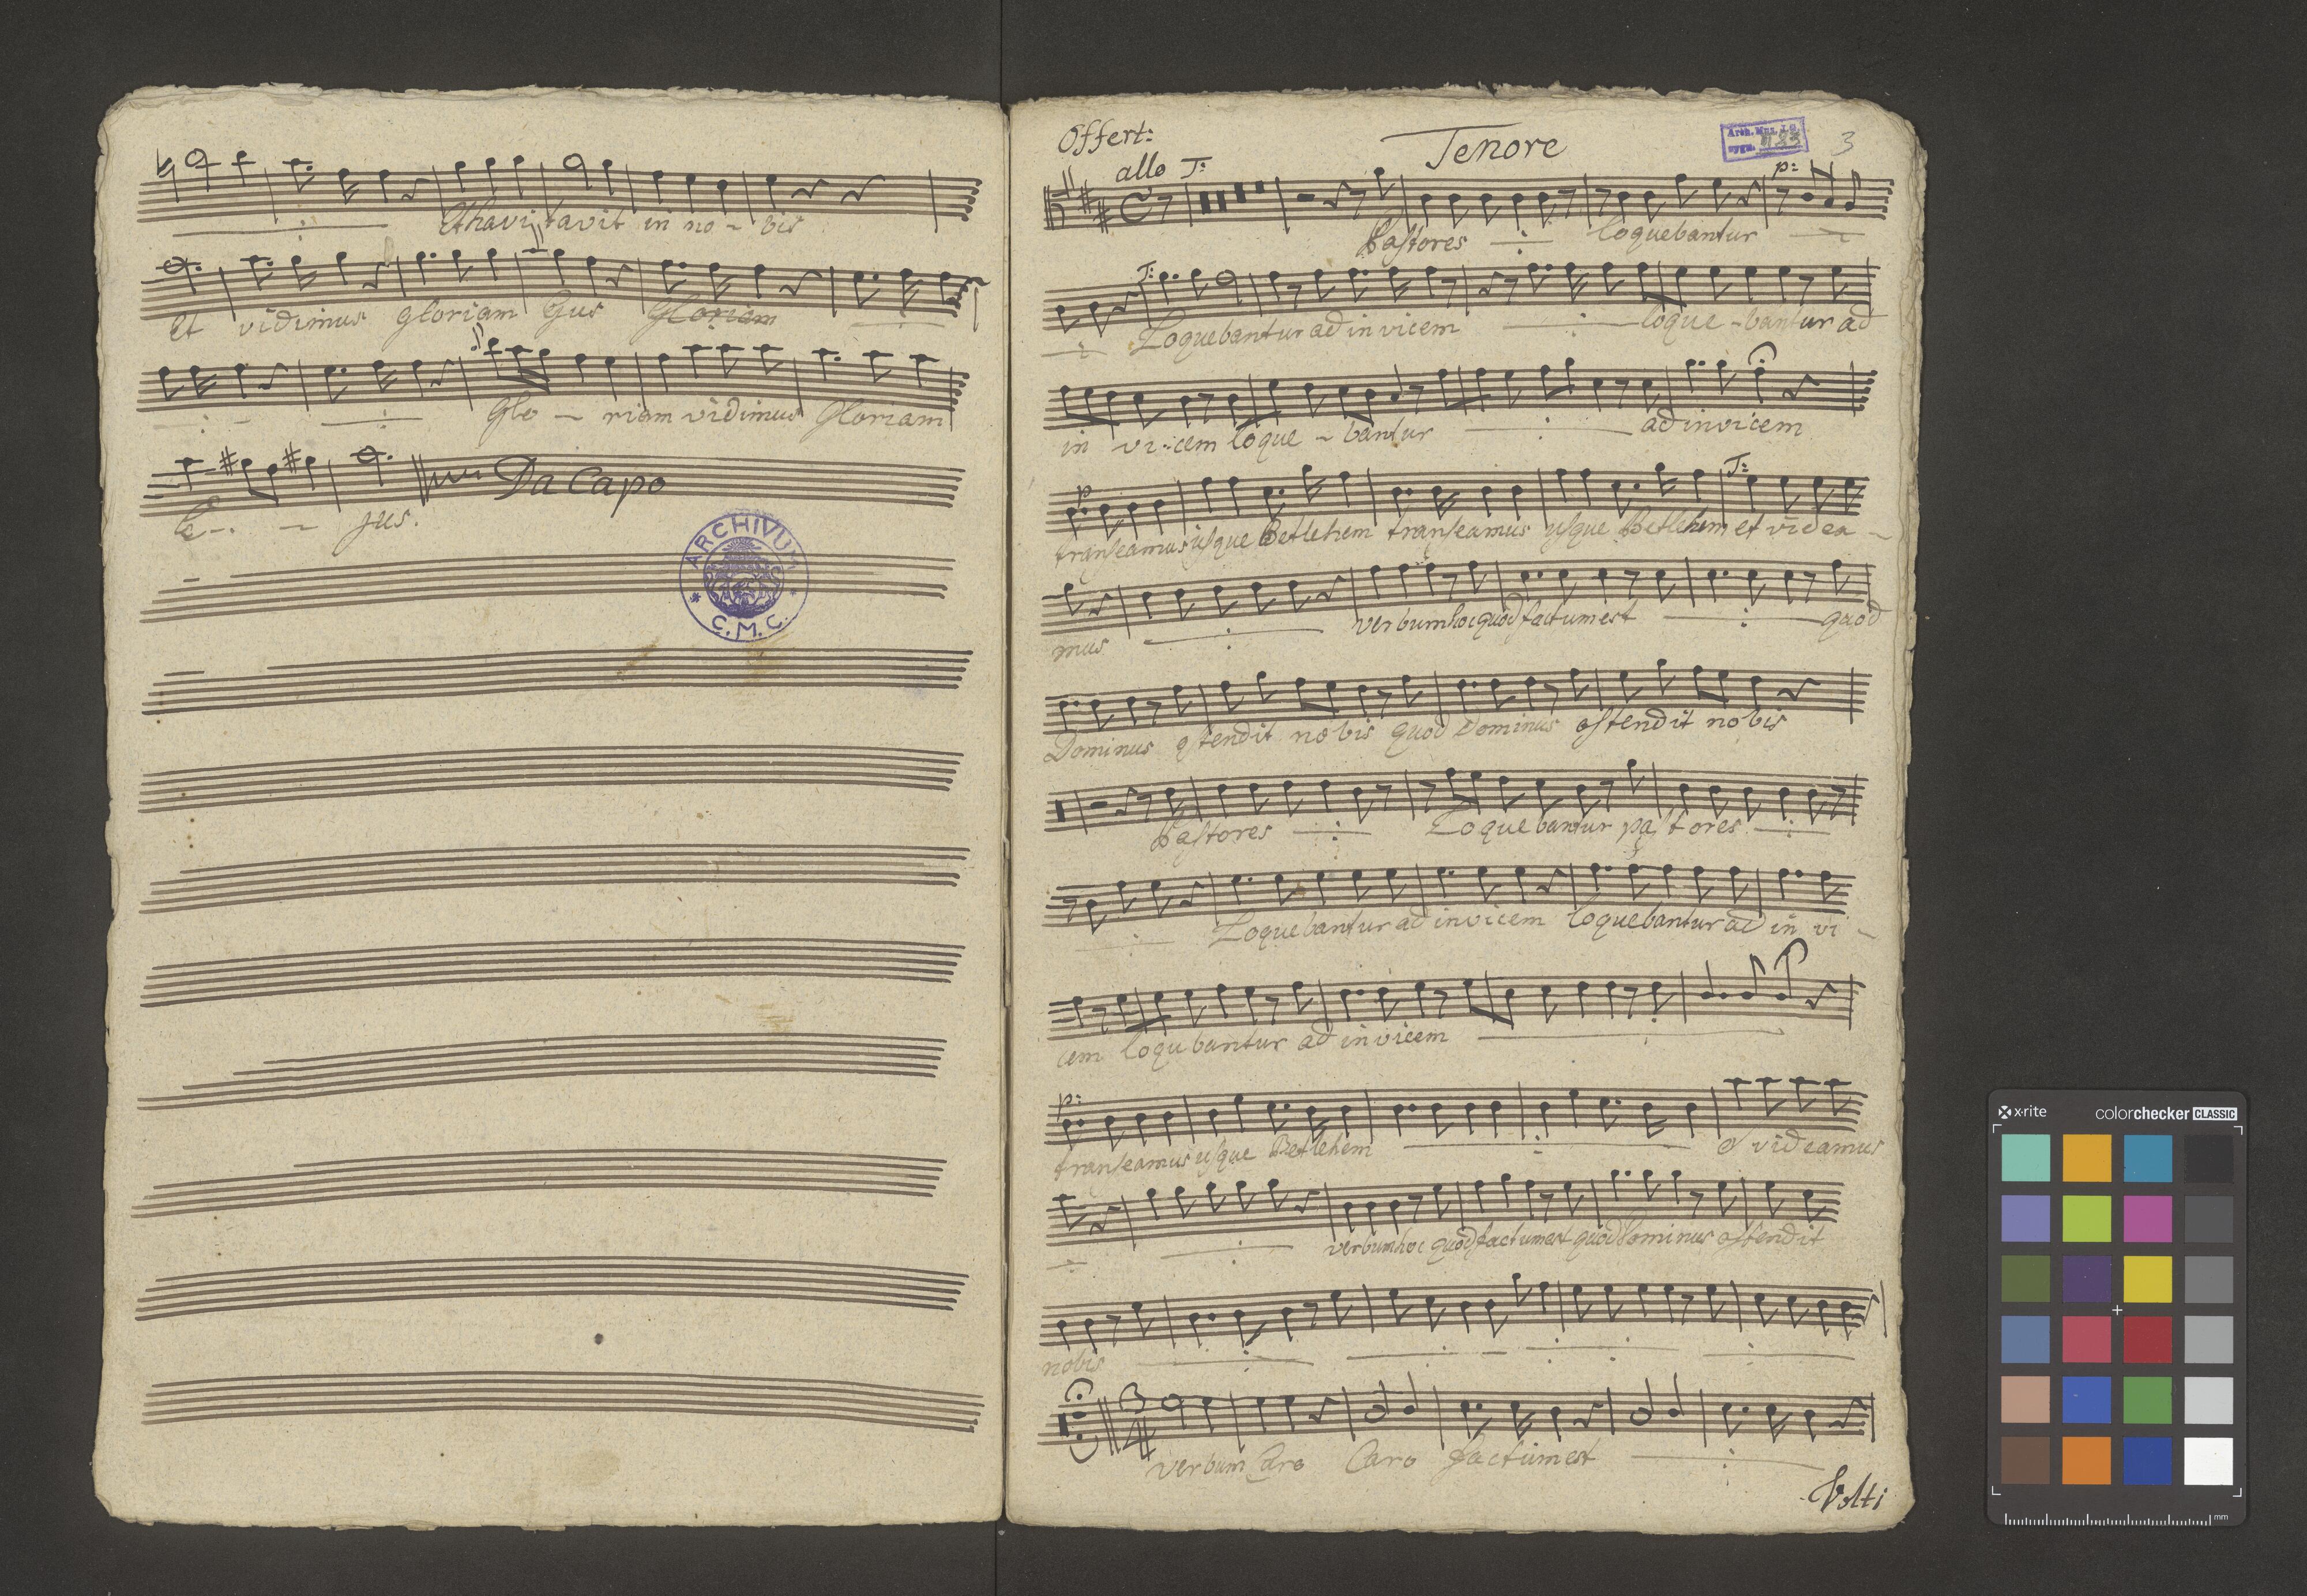 Et havitavit in no - bis
Et vidimus gloriam Ejus Gloriam
Glo - riam vidimus Gloriam
E - - jus.
Da Capo
ARCHIVUM
C. M. C.
Offert:
Tenore
Arch. Muz. J.G.
sygn.
3
allo T:
p:
Pastores loquebantur
T:
Loquebantur ad invicem loque - bantur ad
in vi - cem loque - bantur ad invicem
p
T:
transeamus usque Betlehem transeamus usque Betlehem et videa -
mus verbum hoc quod factum est quod
Dominus ostendit nobis quod Dominus ostendit nobis
Pastores Loquebantur pastores
Loquebantur ad invicem loquebantur ad in vi -
cem loqubantur ad invicem
p:
transeamus usque Betlehem & videamus
verbum hoc quod factum est quod Dominus ostendit
nobis
3
4
verbum Caro Caro factum est
Volti
x-rite
colorchecker CLASSIC
mm